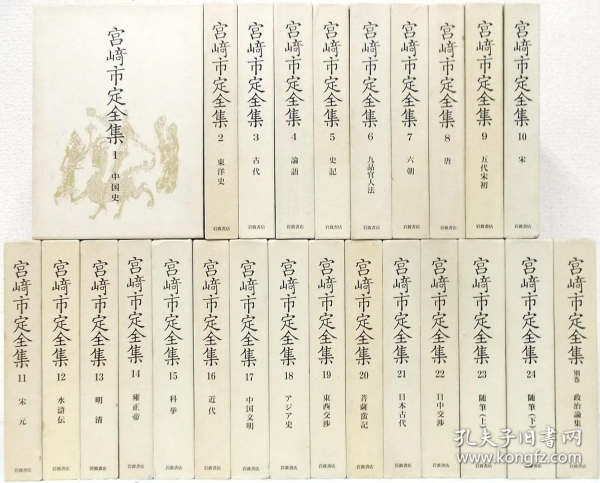 宮﨑市定全集
1
中国史
宮﨑市定全集
2
東洋史
岩波書店
宮﨑市定全集
3
古代
岩波書店
宮﨑市定全集
4
論語
岩波書店
宮﨑市定全集
5
史記
岩波書店
宮﨑市定全集
6
九品官人法
岩波書店
宮﨑市定全集
7
六朝
岩波書店
宮﨑市定全集
8
唐
岩波書店
宮﨑市定全集
9
五代宋初
岩波書店
宮﨑市定全集
10
宋
岩波書店
宮﨑市定全集
11
宋 元
岩波書店
宮﨑市定全集
12
水滸伝
岩波書店
宮﨑市定全集
13
明 清
岩波書店
宮﨑市定全集
14
雍正帝
岩波書店
宮﨑市定全集
15
科挙
岩波書店
宮﨑市定全集
16
近代
岩波書店
宮﨑市定全集
17
中国文明
岩波書店
宮﨑市定全集
18
アジア史
岩波書店
宮﨑市定全集
19
東西交渉
岩波書店
宮﨑市定全集
20
菩薩蛮記
岩波書店
宮﨑市定全集
21
日本古代
岩波書店
宮﨑市定全集
22
日中交渉
岩波書店
宮﨑市定全集
23
随筆(上)
岩波書店
宮﨑市定全集
24
随筆(下)
岩波書店
宮﨑市定全集
別巻
政治論集
孔夫子旧书网
www.kongfz.com